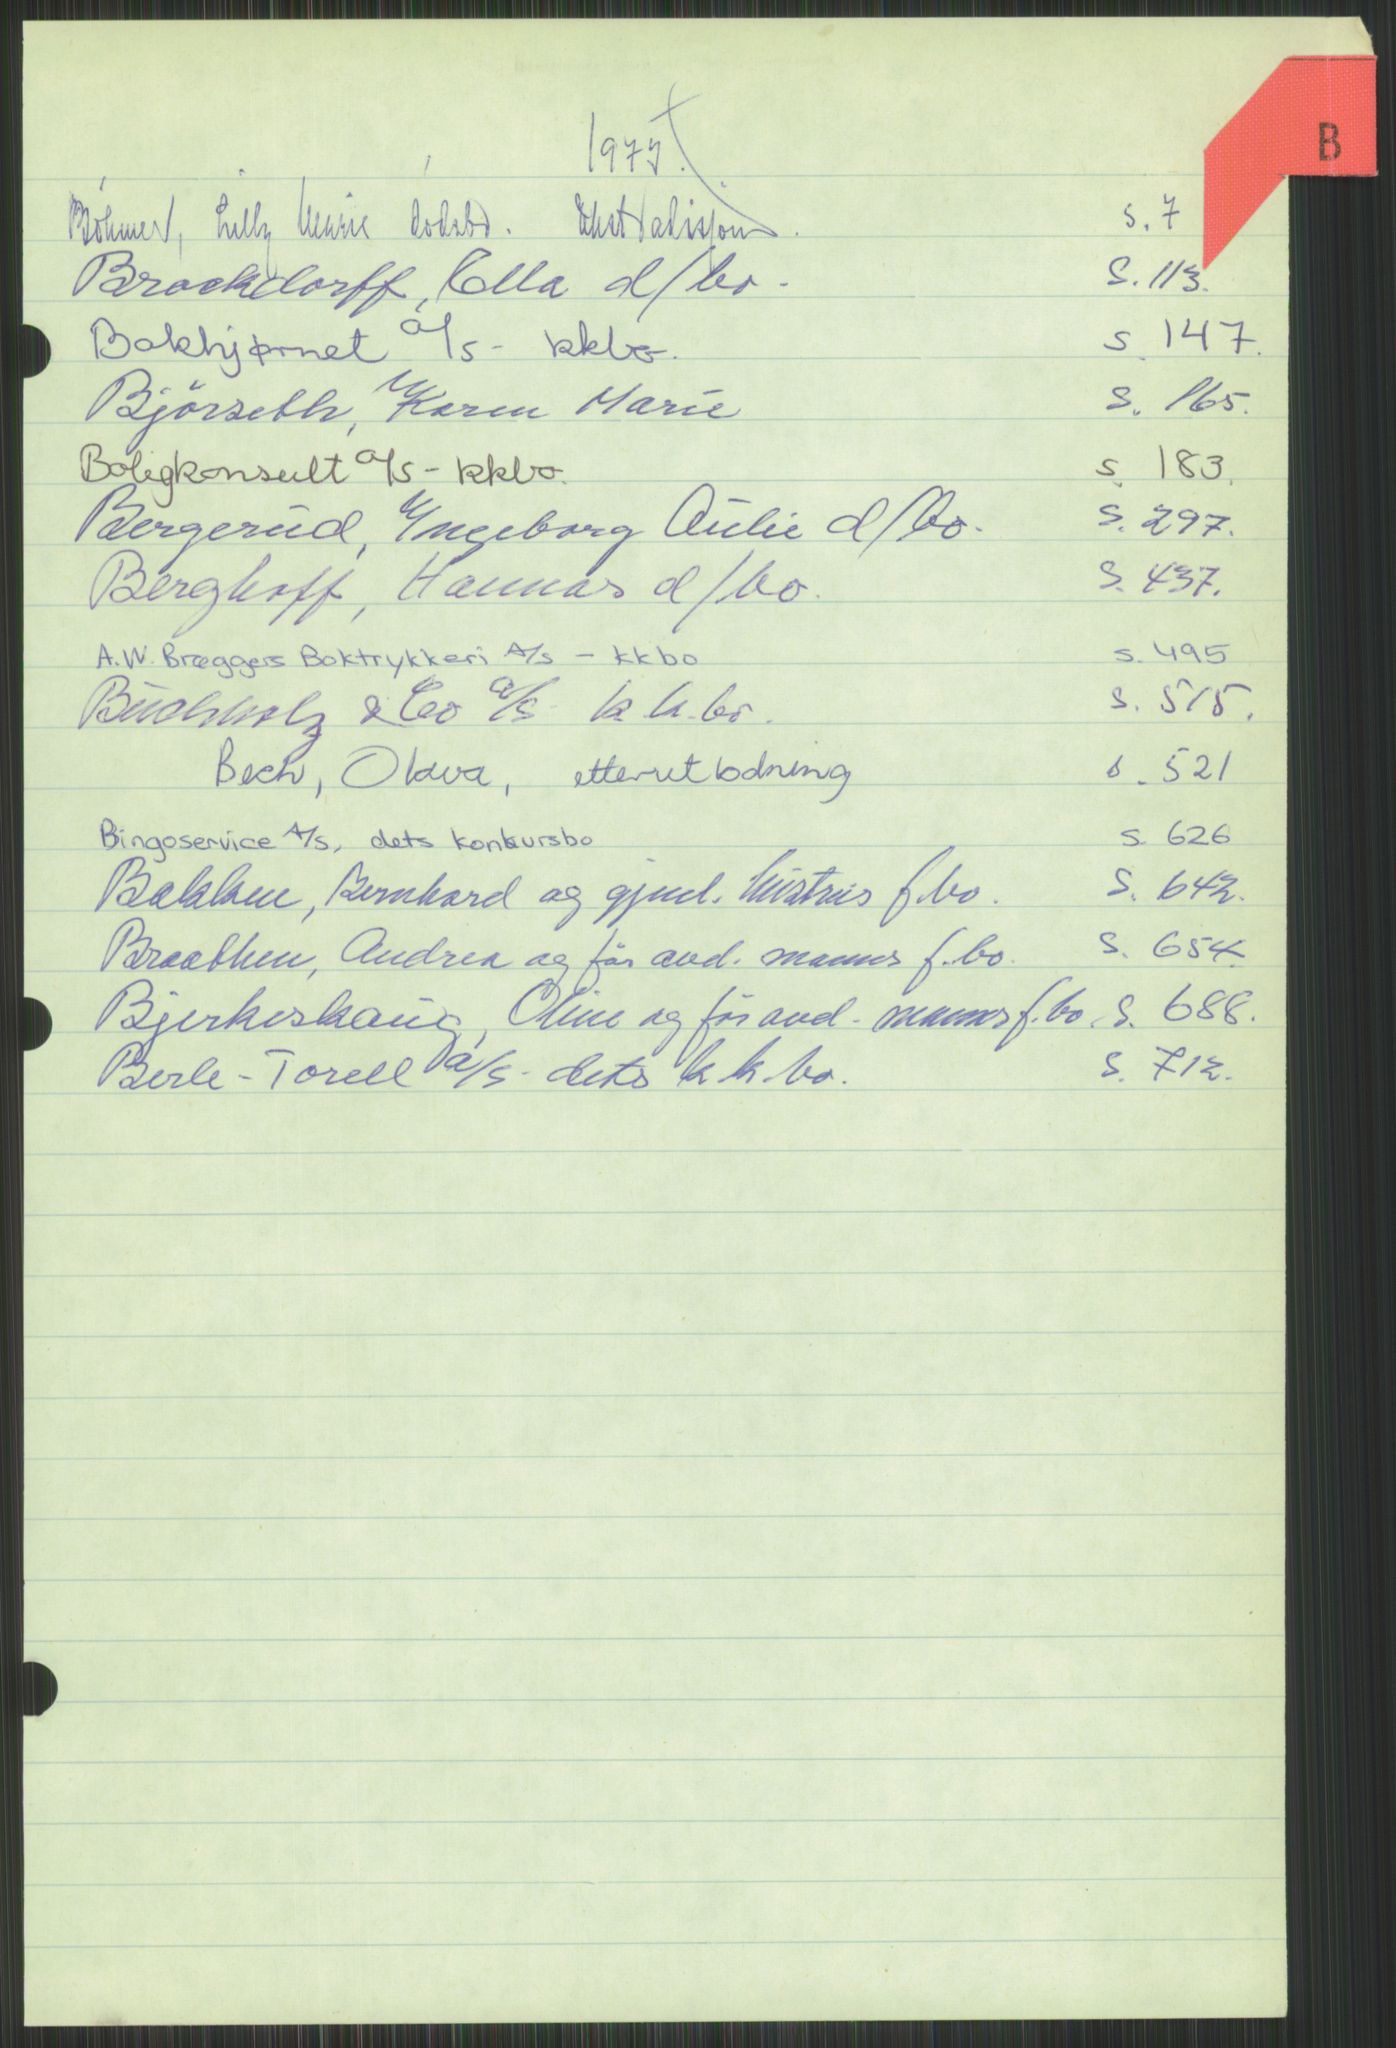 B
197
Böhmer, Lilly Marie dødsbo. Ekstradisjon. s. 7
Brockdorff, Ella d/bo. S. 113.
Bokhjørnet a/s - kkbo. s. 147.
Bjørseth, Karen Marie S. 165.
Boligkonsult a/s - kkbo. s. 183.
Bergerud, Ingeborg Aulie d/bo. S. 297.
Berghoff, Hannas d/bo. S. 437.
A.W. Brøggers Boktrykkeri A/s - kkbo s. 495
Buchholz & Co a/s k.k.bo. s. 515.
Bech, Olava, etterutlodning s. 521
Bingoservice A/s, dets konkursbo s. 626
Bakken, Bernhard og gjenl. hustrus f.bo. S. 642.
Braathen, Andrea og før avd. manns f.bo. S. 654.
Bjerkeskaug, Oline og før avd. manns f.bo. S. 688.
Berle-Torell a/s - dets k.k.bo. S. 712.